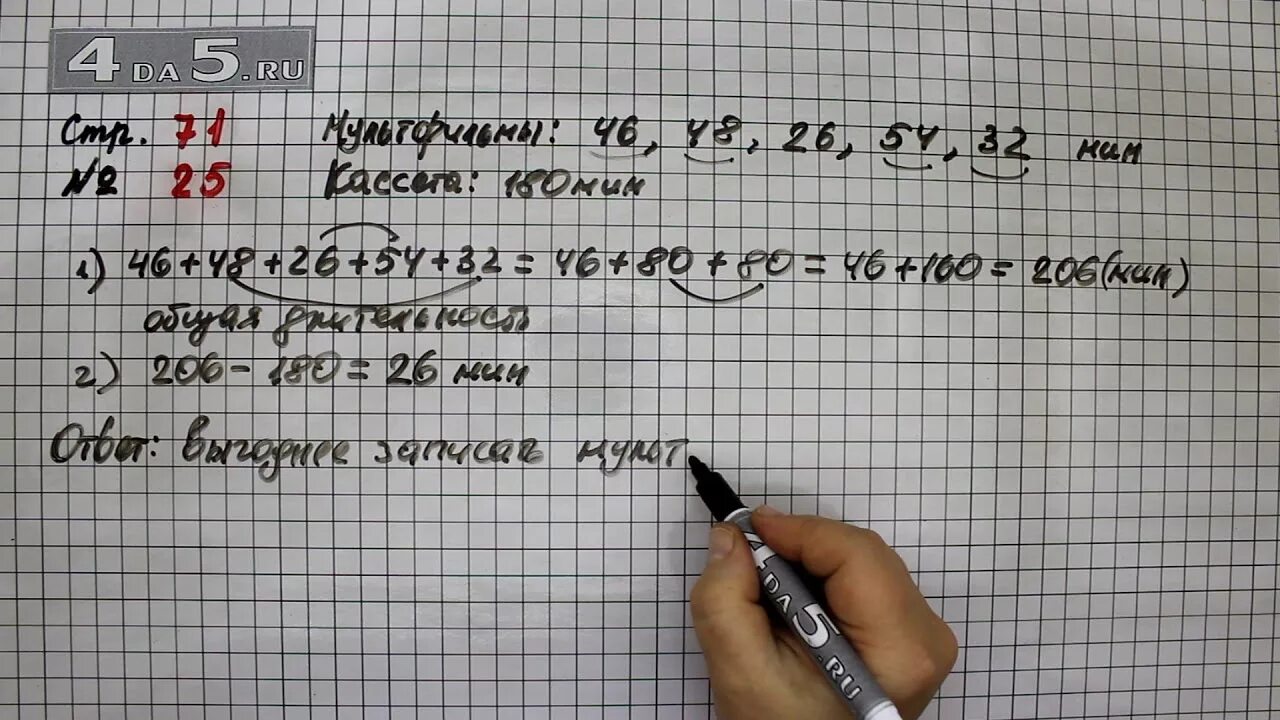 4DA5.RU
Стр. 71 Мультфильмы: 46, 48, 26, 54, 32 мин
№ 25 Кассета: 180 мин
1) 46+48+26+54+32 = 46+80+80 = 46+160 = 206 (мин)
общая длительность
2) 206 - 180 = 26 мин
Ответ: выгоднее записать мульт
4DA5.RU